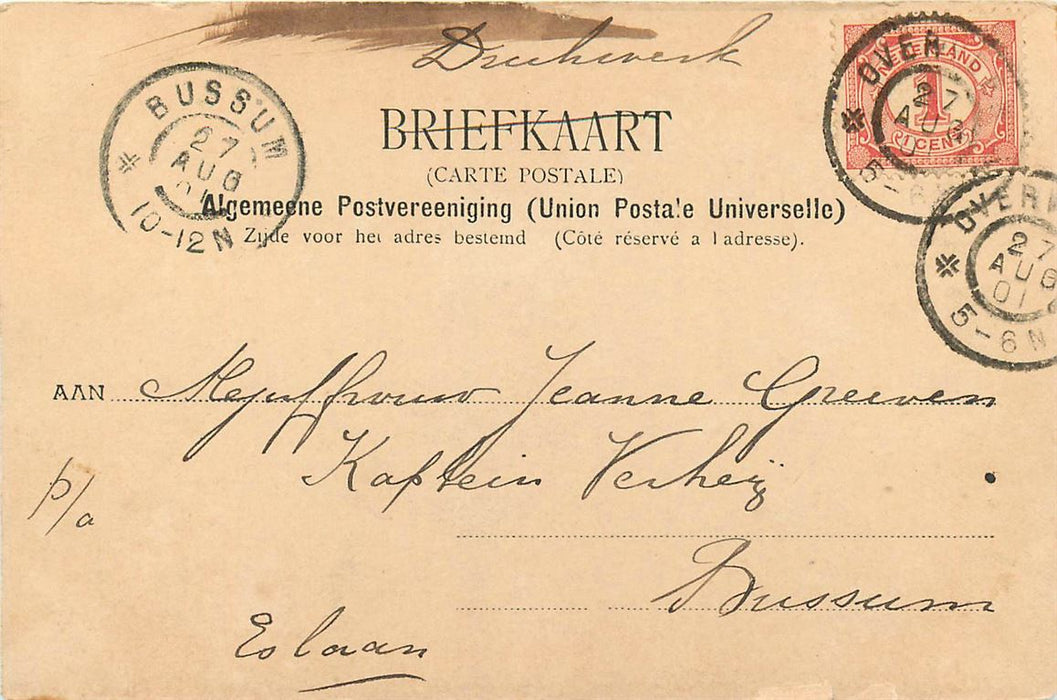 Drukwerk
BRIEFKAART
(CARTE POSTALE)
Algemeene Postvereeniging (Union Postale Universelle)
Zijde voor het adres bestemd (Côté réservé a l adresse).
BUSSUM
27
AUG
01
10-12N
NEDERLAND
1
1 CENT
OVER
27
AUG
5-6
OVER
27
AUG
01
5-6N
AAN Mejuffrouw Jeanne Greeven
p/a Kaptein Verheÿ
Bussum
Eslaan